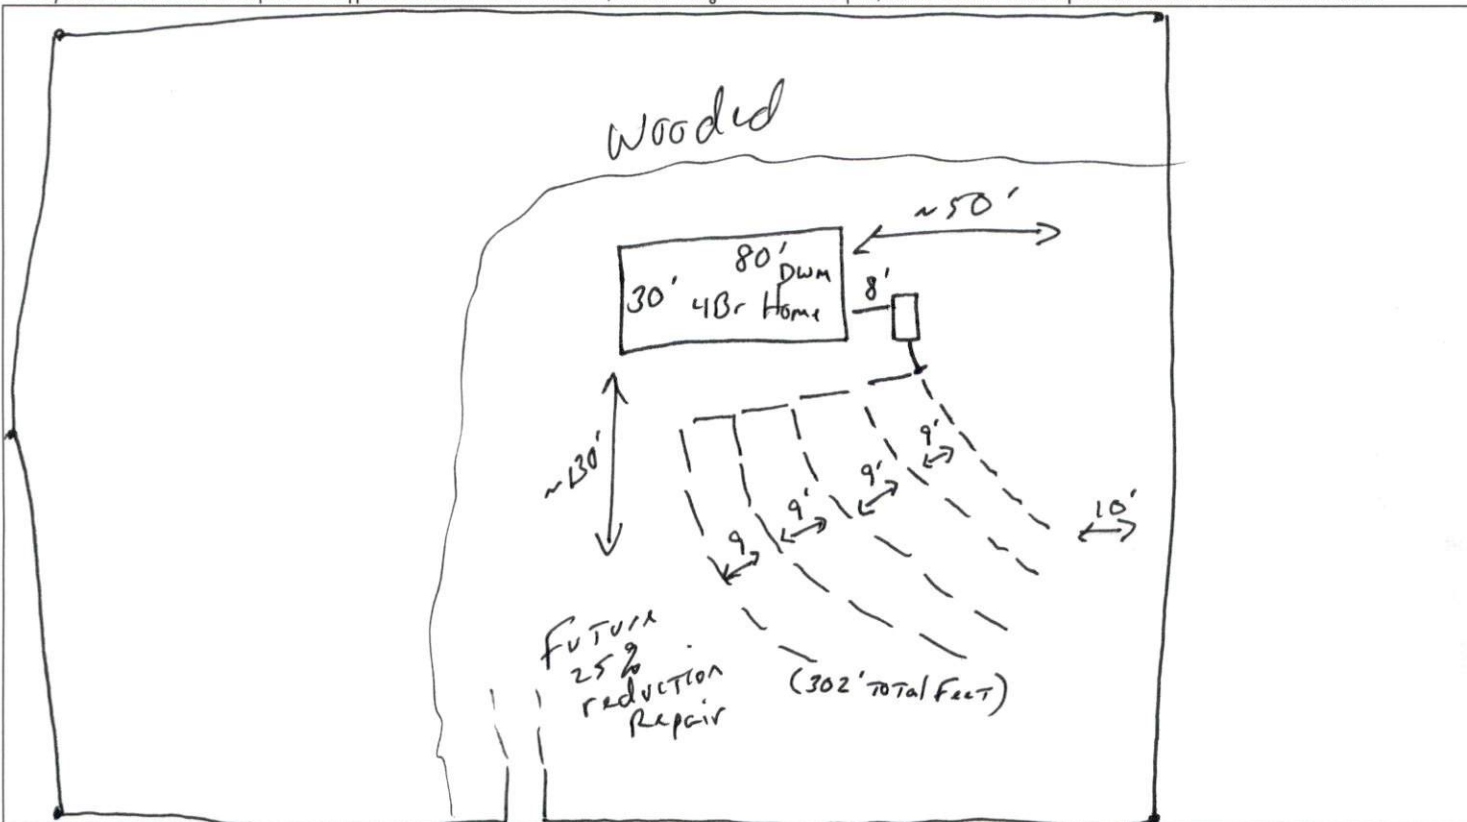 Wooded
~50'
80'
DWM
30' 4Br Home
8'
~130'
9'
9'
9'
9
10'
Future
25%
reduction
Repair
(302' Total Feet)